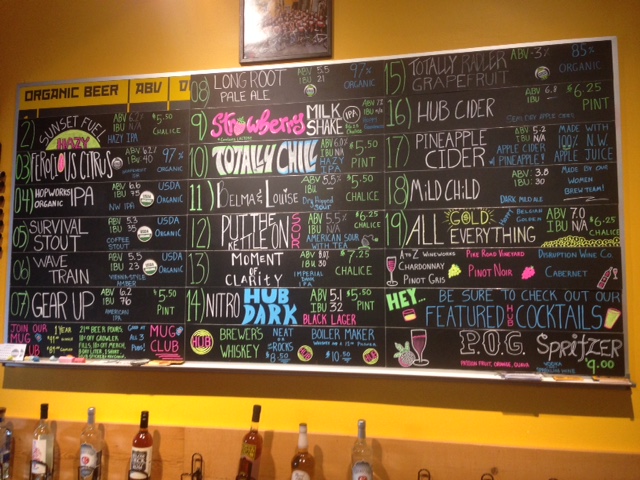 ORGANIC BEER ABV
2) SUNSET FUEL HAZY
ABV 6.2%
IBU N/A
HAZY IPA
$5.50
CHALICE
03 FEROCIOUS CITRUS
IBU 40
97%
ORGANIC
04) HOPWORKS IPA
ORGANIC
ABV 6.6
IBU 45
NW IPA
USDA
ORGANIC
05 SURVIVAL STOUT
ABV 5.3
IBU 35
COFFEE STOUT
USDA
ORGANIC
06 WAVE TRAIN
ABV 5.5
IBU 23
VIENNA-STYLE AMBER
USDA
ORGANIC
07) GEAR UP
ABV 6.2
IBU 76
AMERICAN IPA
$5.50
PINT
JOIN OUR MUG CLUB
1 YEAR
21oz BEER POURS
MUG CLUB
08) LONG ROOT PALE ALE
ABV 5.5
IBU 21
97%
ORGANIC
9 Strawberry MILK SHAKE IPA
10 TOTALLY CHILL
ABV 6.0%
IBU N/A
HAZY IPA
$5.50
PINT
11) BELMA & LOUISE
ABV 5.5%
Dry Hopped Sour
$5
CHALICE
12 PUT THE KETTLE ON SOUR
ABV 5.5%
IBU N/A
AMERICAN SOUR WITH TEA
$6.25
CHALICE
13 MOMENT OF CLARITY
IMPERIAL
$7.25
CHALICE
14) NITRO HUB DARK
ABV 5.1
IBU 32
BLACK LAGER
$5.50
PINT
HUB BREWER'S WHISKEY
NEAT OR ROCKS
$8.50
BOILER MAKER
$10.50
15) TOTALLY RADLER GRAPEFRUIT
ABV
85%
ORGANIC
16) HUB CIDER
ABV 6.8
SEMI DRY APPLE CIDER
$6.25
PINT
17) PINEAPPLE CIDER
ABV 5.2
IBU N/A
APPLE CIDER & PINEAPPLE!
MADE WITH
100% N.W.
APPLE JUICE
18) MILD CHILD
ABV 3.8
IBU 30
DARK MILD
MADE BY OUR
WOMEN
BREW TEAM!
19) ALL GOLD EVERYTHING
BELGIAN GOLDEN
ABV 7.0
IBU N/A
$6.25
CHALICE
A TO Z WINEWORKS
CHARDONNAY
PINOT GRIS
PIKE ROAD VINEYARD
PINOT NOIR
DISRUPTION WINE CO.
CABERNET
HEY... BE SURE TO CHECK OUT OUR
FEATURED HUB COCKTAILS
P.O.G. SPRITZER
PASSION FRUIT, ORANGE, GUAVA
9.00